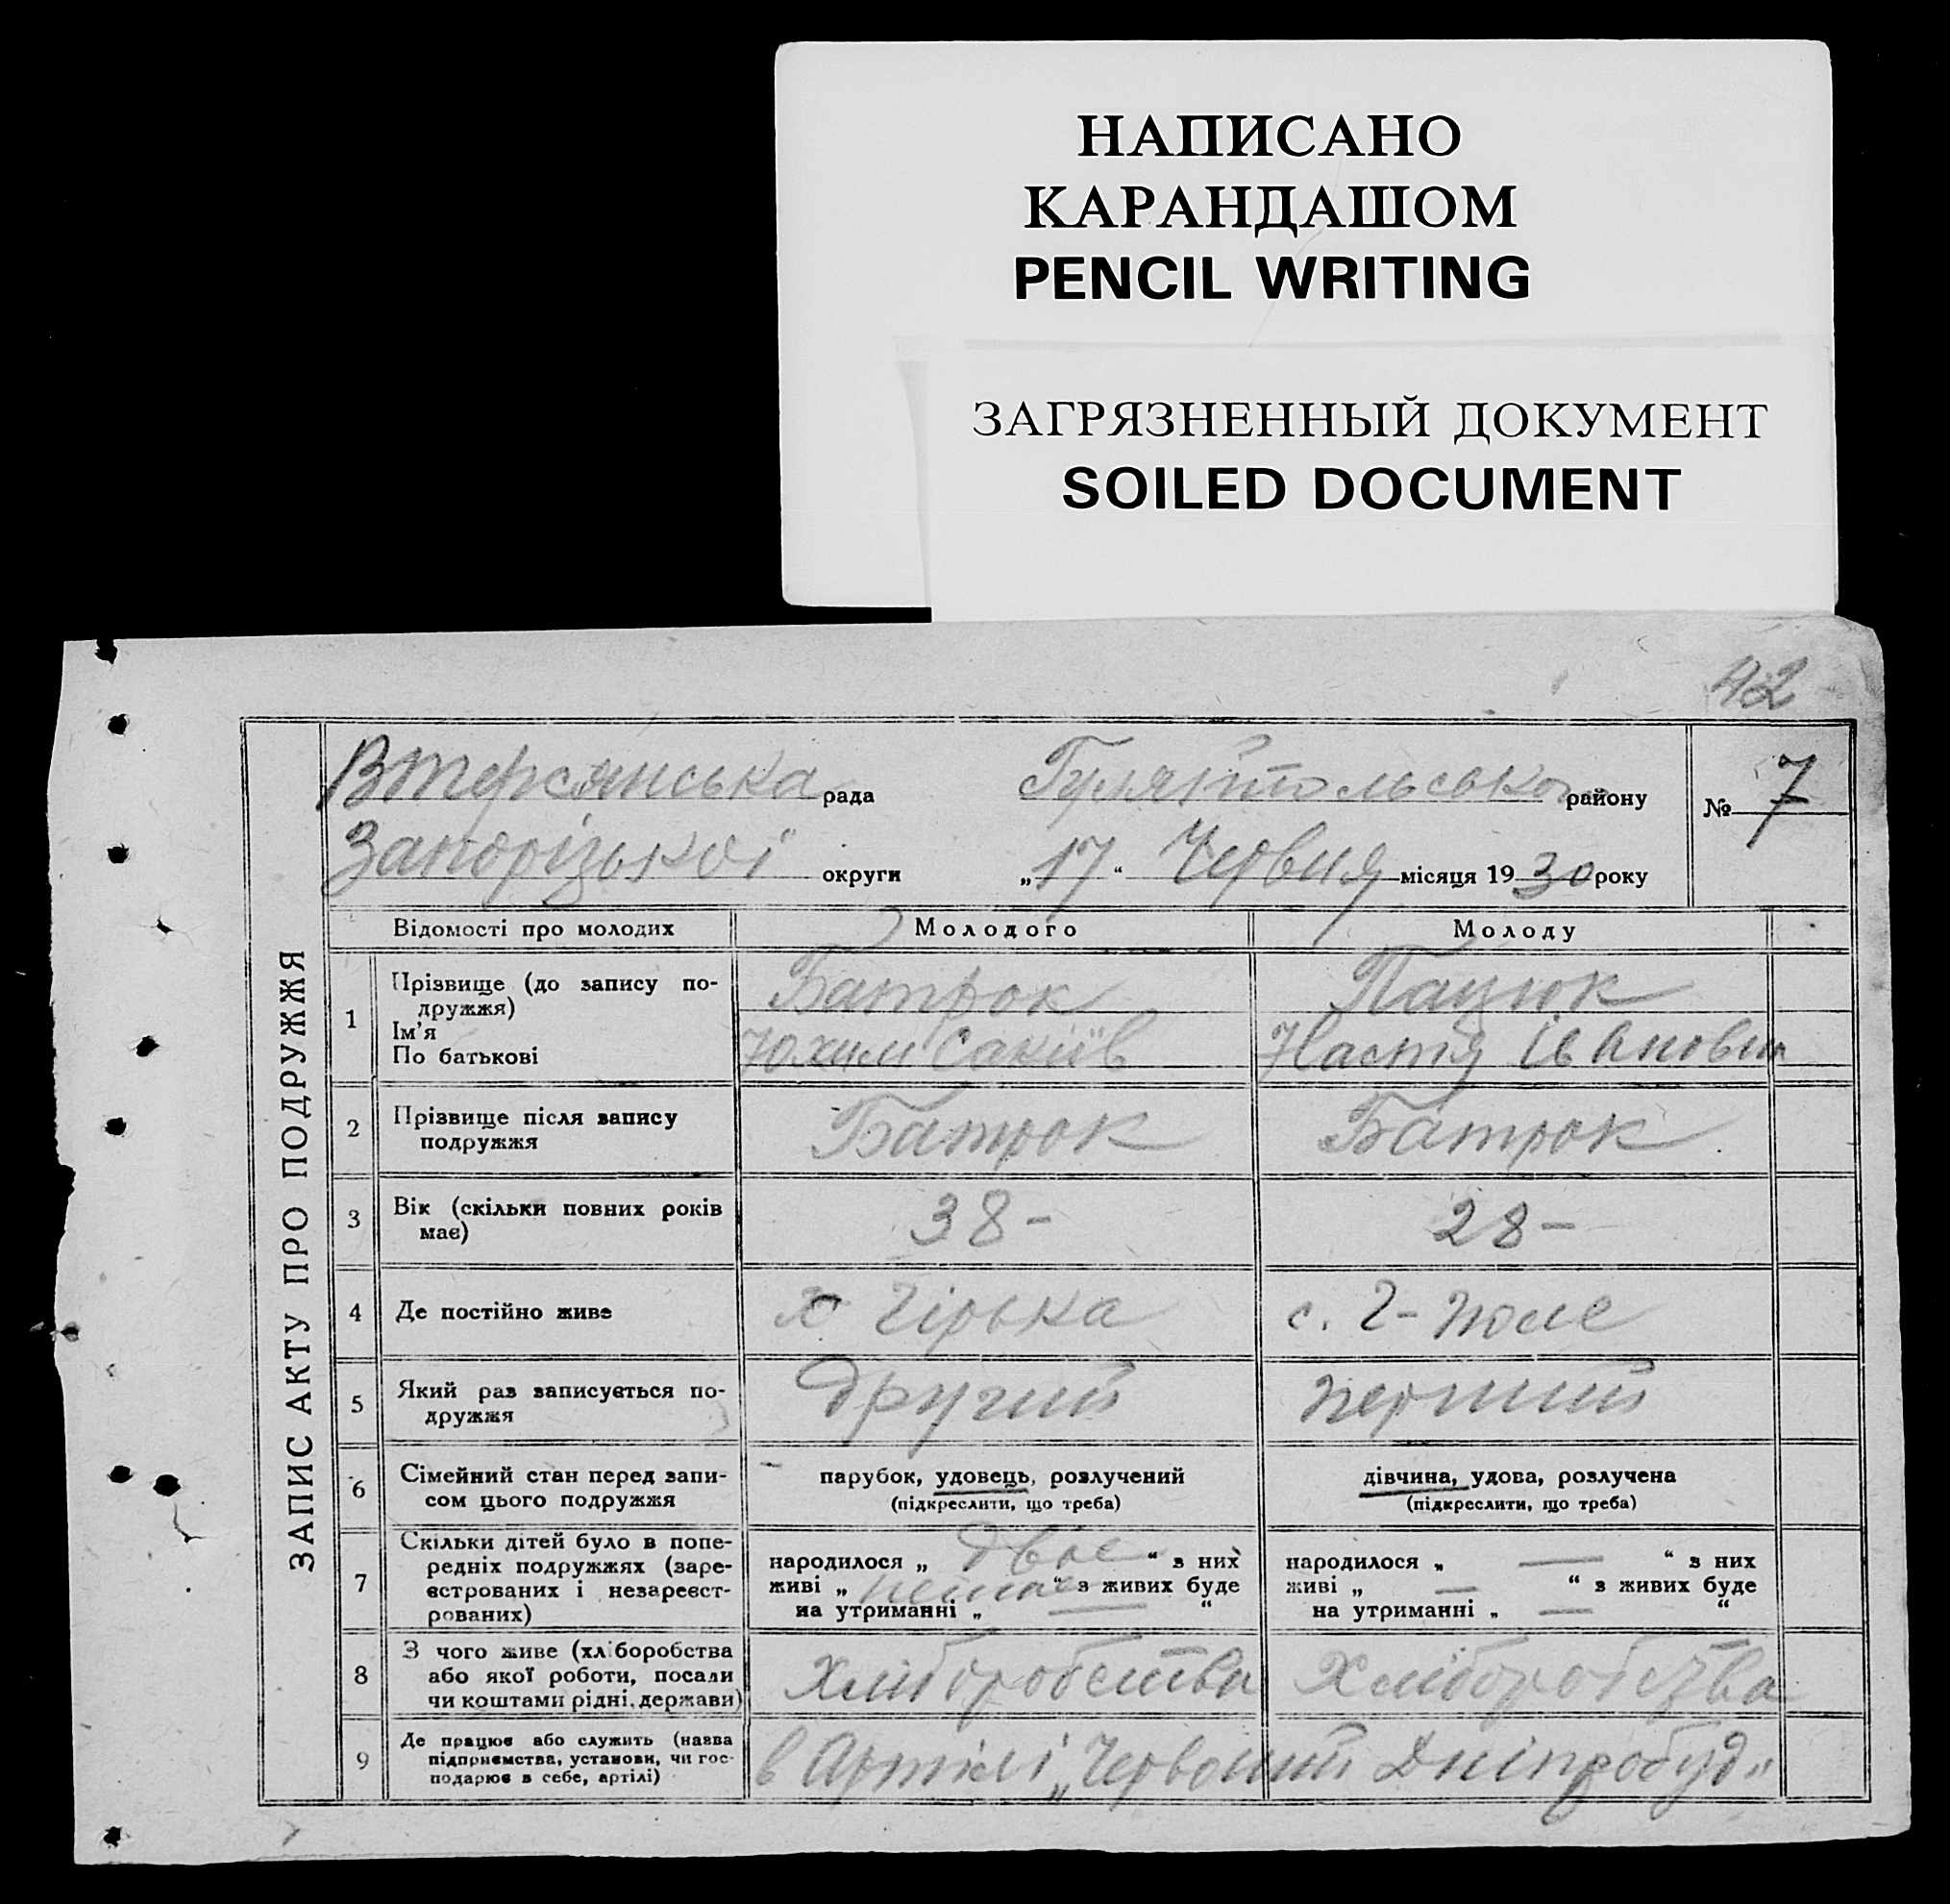 НАПИСАНО
КАРАНДАШОМ
PENCIL WRITING
ЗАГРЯЗНЕННЫЙ ДОКУМЕНТ
SOILED DOCUMENT
42
ЗАПИС АКТУ ПРО ПОДРУЖЖЯ
Втерсянська рада Гуляйпольсько району № 7
Запорізької округи „17“ Червня місяця 1930 року
Відомості про молодих Молодого Молоду
1 Прізвище (до запису по-
дружжя)
Ім'я
По батькові
Батрок Пацюк
Юхим Сакіїв Настя Івановна
2 Прізвище після запису
подружжя
Батрок Батрок
3 Вік (скільки повних років
має)
38- 28-
4 Де постійно живе х Гірька с. Г-Поле
5 Який раз записується по-
дружжя
Другий перший
6 Сімейний стан перед запи-
сом цього подружжя
парубок, удовець, розлучений
(підкреслити, що треба)
дівчина, удова, розлучена
(підкреслити, що треба)
7 Скільки дітей було в попе-
редніх подружжях (заре-
єстрованих і незареєст-
рованих)
народилося „ двоє “ з них
живі „ немає “ з живих буде
на утриманні „ — “
народилося „ — “ з них
живі „ — “ з живих буде
на утриманні „ — “
8 З чого живе (хліборобства
або якої роботи, посади
чи коштами рідні, держави)
Хліборобства Хліборобства
9 Де працює або служить (назва
підприємства, установи, чи гос-
подарює в себе, артілі)
в Артілі „Червоний Дніпробуд"